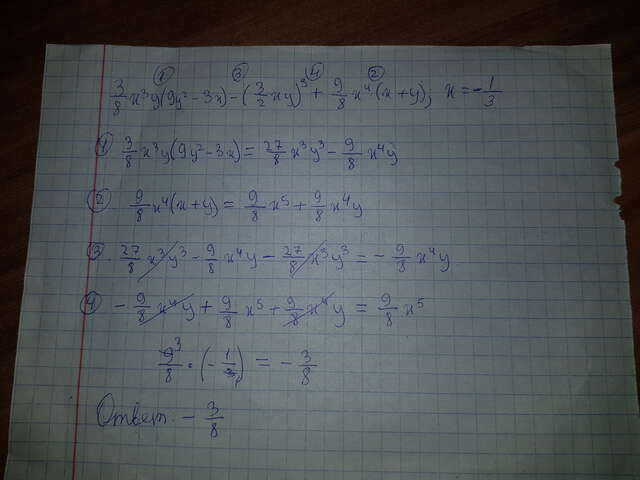 ① ③ ④ ②
3/8 x³y(9y² - 3x) - (3/2 xy)³ + 9/8 x⁴(x+y), x = -1/3
① 3/8 x³y(9y² - 3x) = 27/8 x³y³ - 9/8 x⁴y
② 9/8 x⁴(x+y) = 9/8 x⁵ + 9/8 x⁴y
③ 27/8 x³y³ - 9/8 x⁴y - 27/8 x³y³ = - 9/8 x⁴y
④ - 9/8 x⁴y + 9/8 x⁵ + 9/8 x⁴y = 9/8 x⁵
9³/8 · (- 1/3) = - 3/8
Ответ: - 3/8